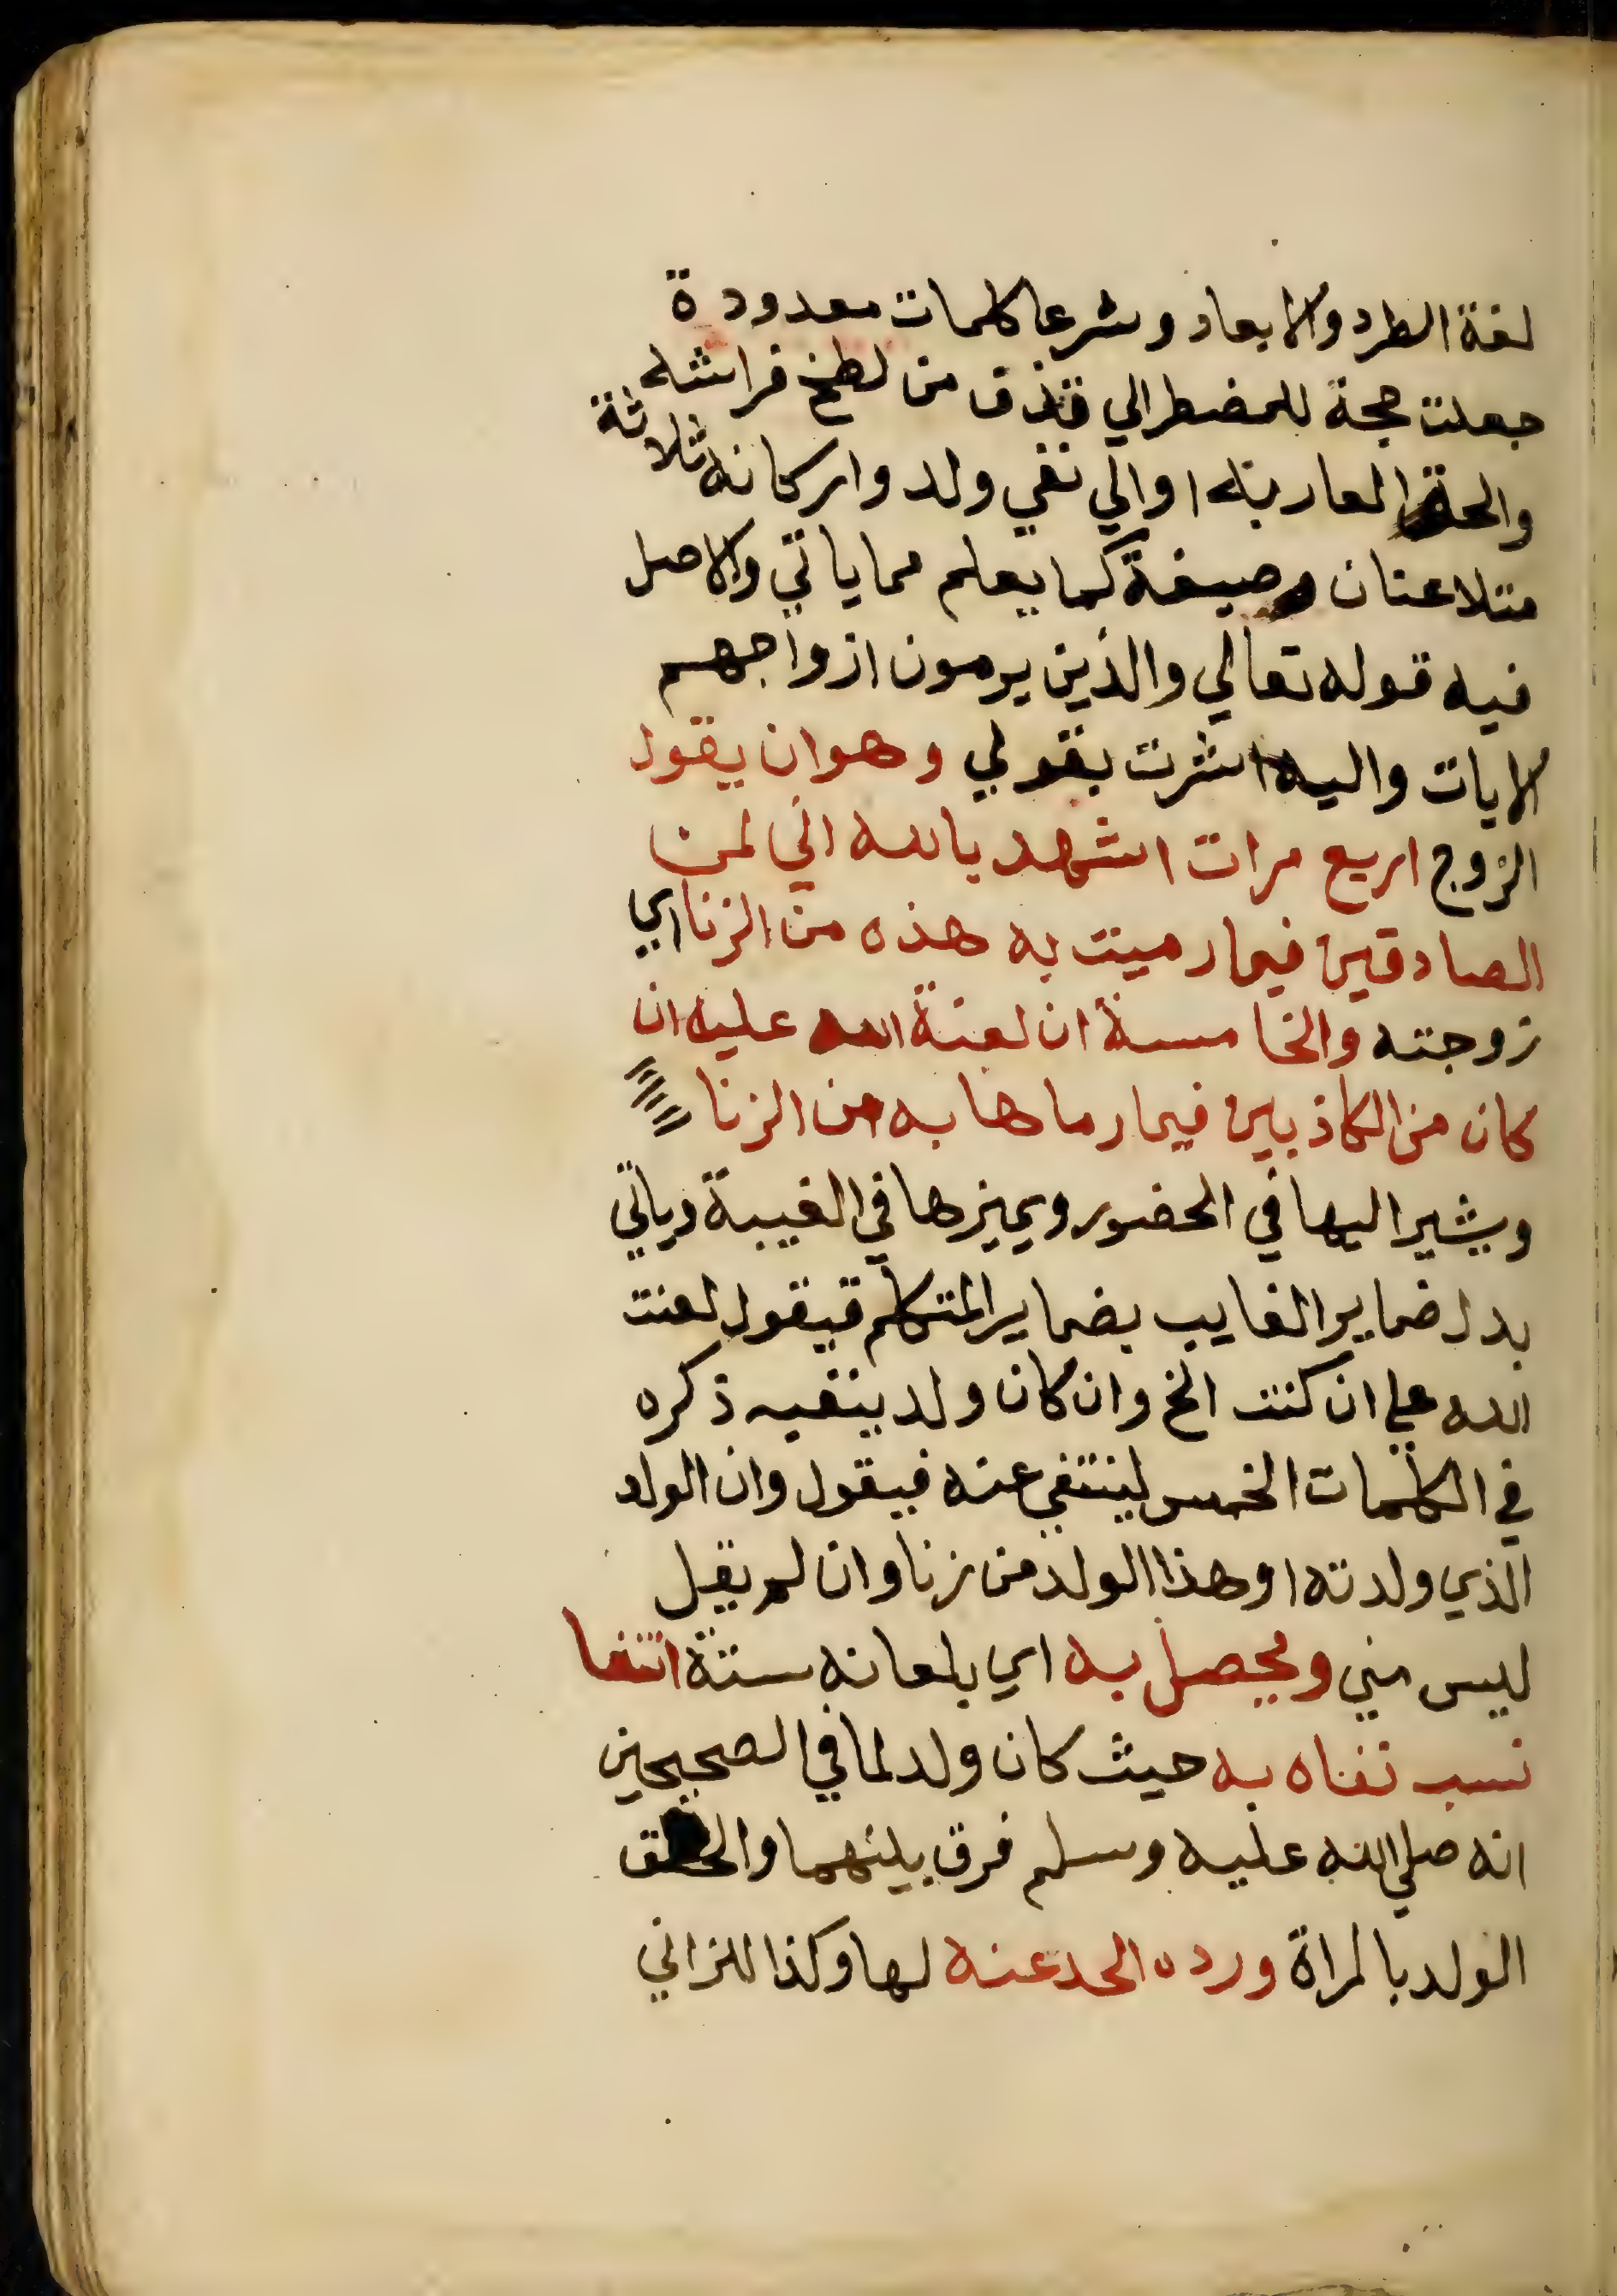 لغة الطرد والابعاد وشرعا كلمات معدودة
جعلت حجة للمضطر الي قذف من لطخ فراشه
والحق العار به او الي نفي ولد واركانه ثلاثة
متلاعنان وصيغة كما يعلم مما ياتي والاصل
فيه قوله تعالي والذين يرمون ازواجهم
الايات واليه اشرت بقولي وهو ان يقول
الزوج اربع مرات اشهد بالله اني لمن
الصادقين فيما رميت به هذه من الزنا اي
زوجته والخامسة ان لعنة الله عليه ان
كان من الكاذبين فيما رماها به من الزنا
ويشير اليها في الحضور ويميزها في الغيبة وياتي
بدل ضماير الغايب بضماير المتكلم فيقول لعنت
الله علي ان كنت الخ وان كان ولد ينفيه ذكره
في الكلمات الخمس لينتفي عنه فيقول وان الولد
الذي ولدته او هذا الولد من زنا وان لم يقل
ليس مني ويحصل به اي بلعانه ستة انتفا
نسب نفاه به حيث كان ولد لما في الصحيحين
انه صلي الله عليه وسلم فرق بينهما والحق
الولد بالمراة ورده الحد عنه لها وكذا للزاني